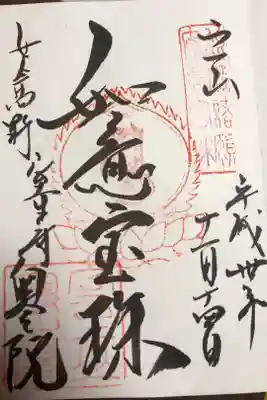 宀一山
平成卅年
十一月十四日
如意宝珠
女人高野 室生寺 奥之院